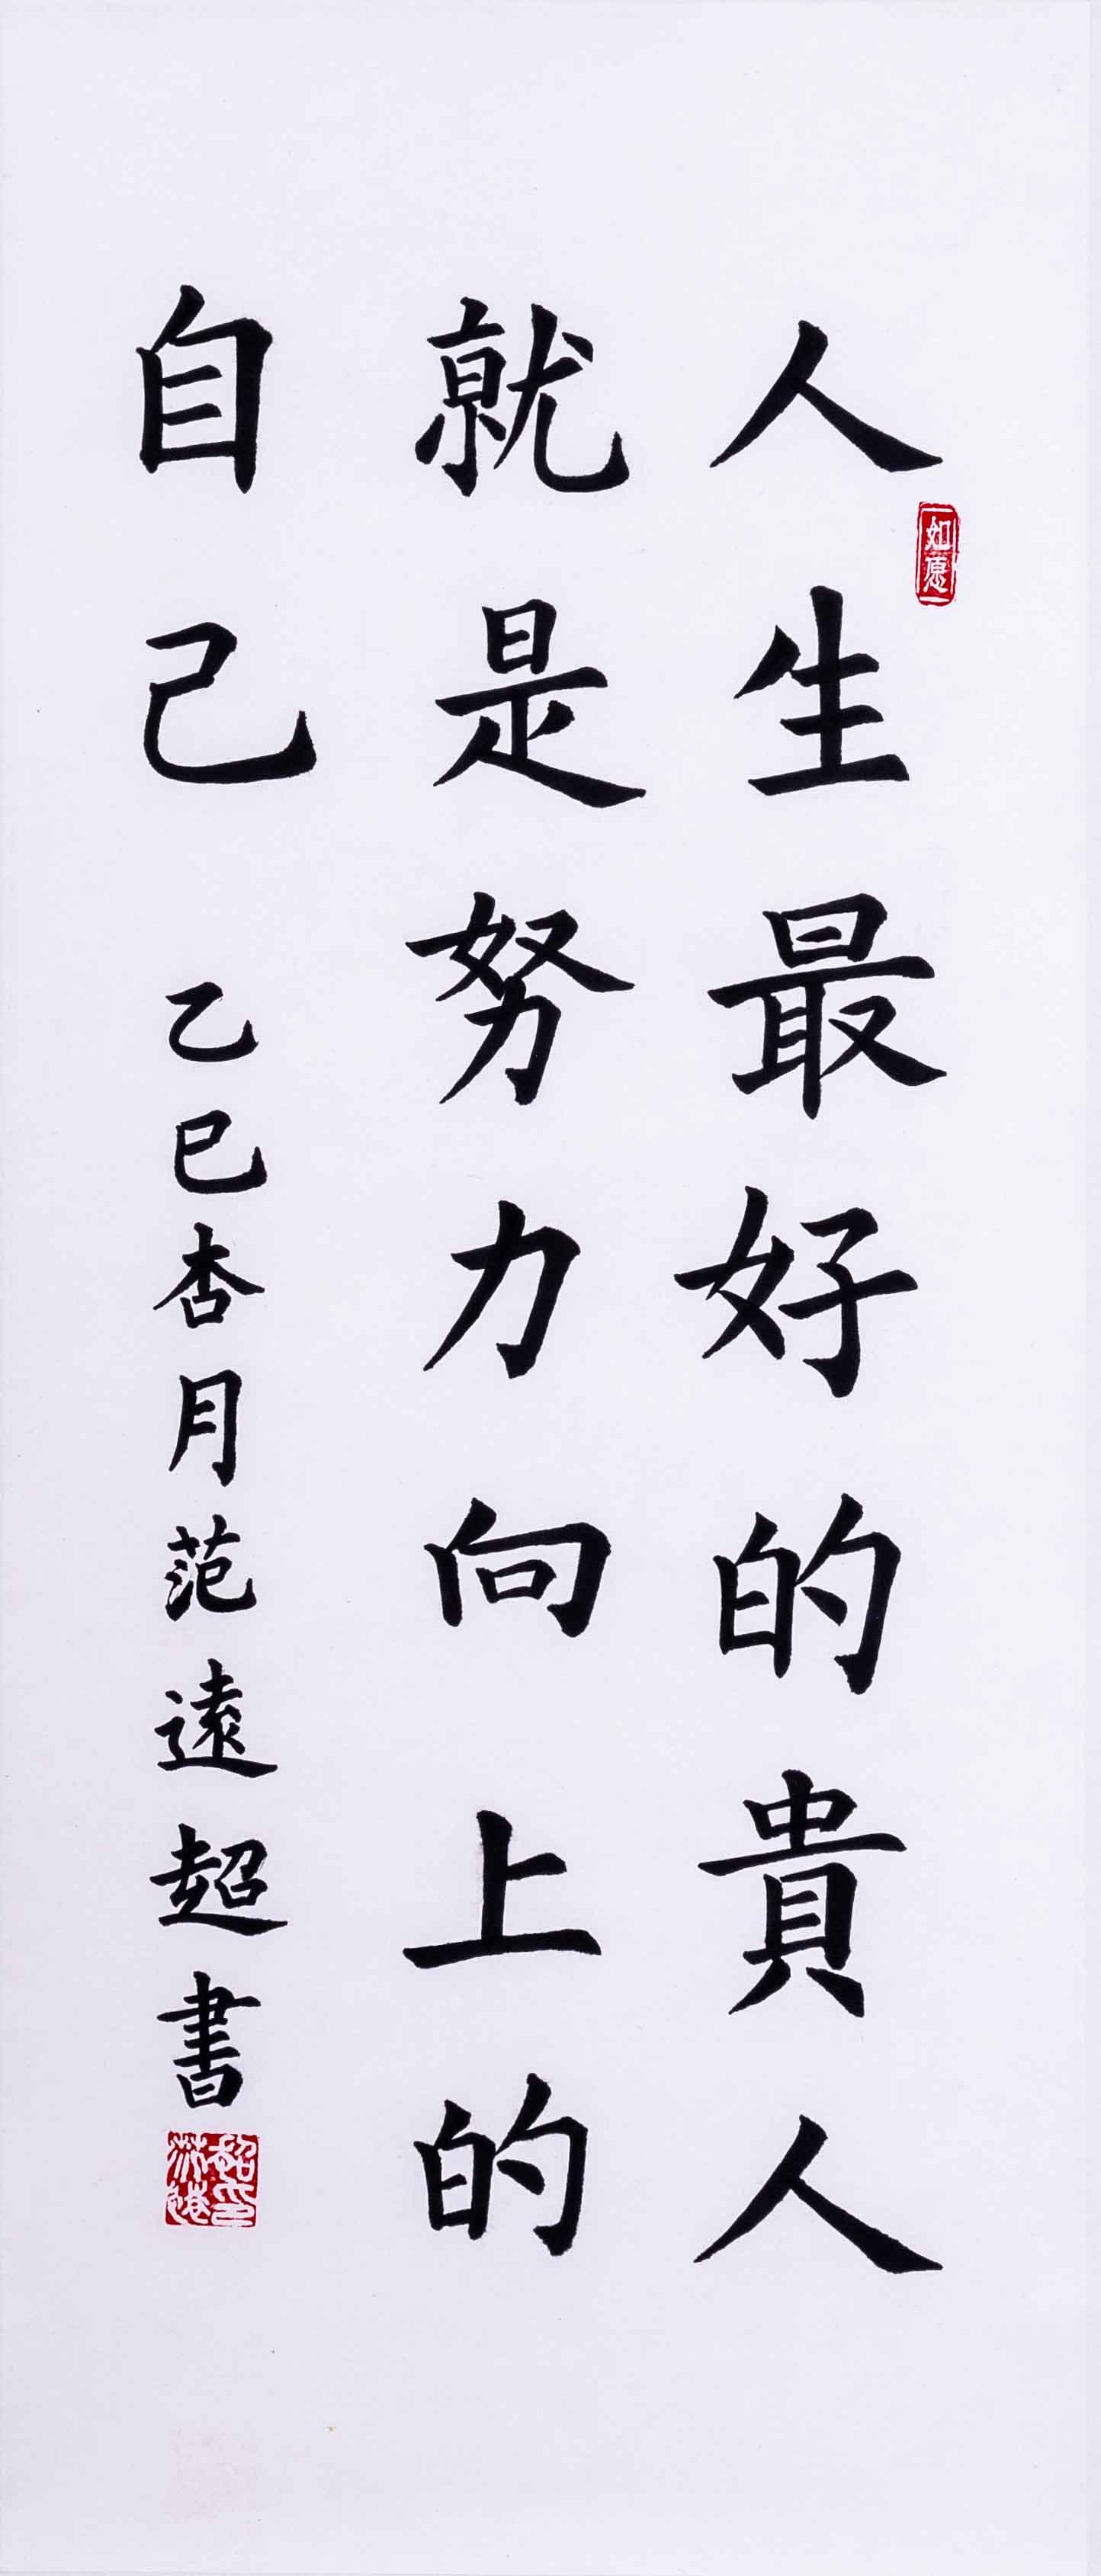 人生最好的貴人
就是努力向上的
自己 乙巳杏月范遠超書
如意